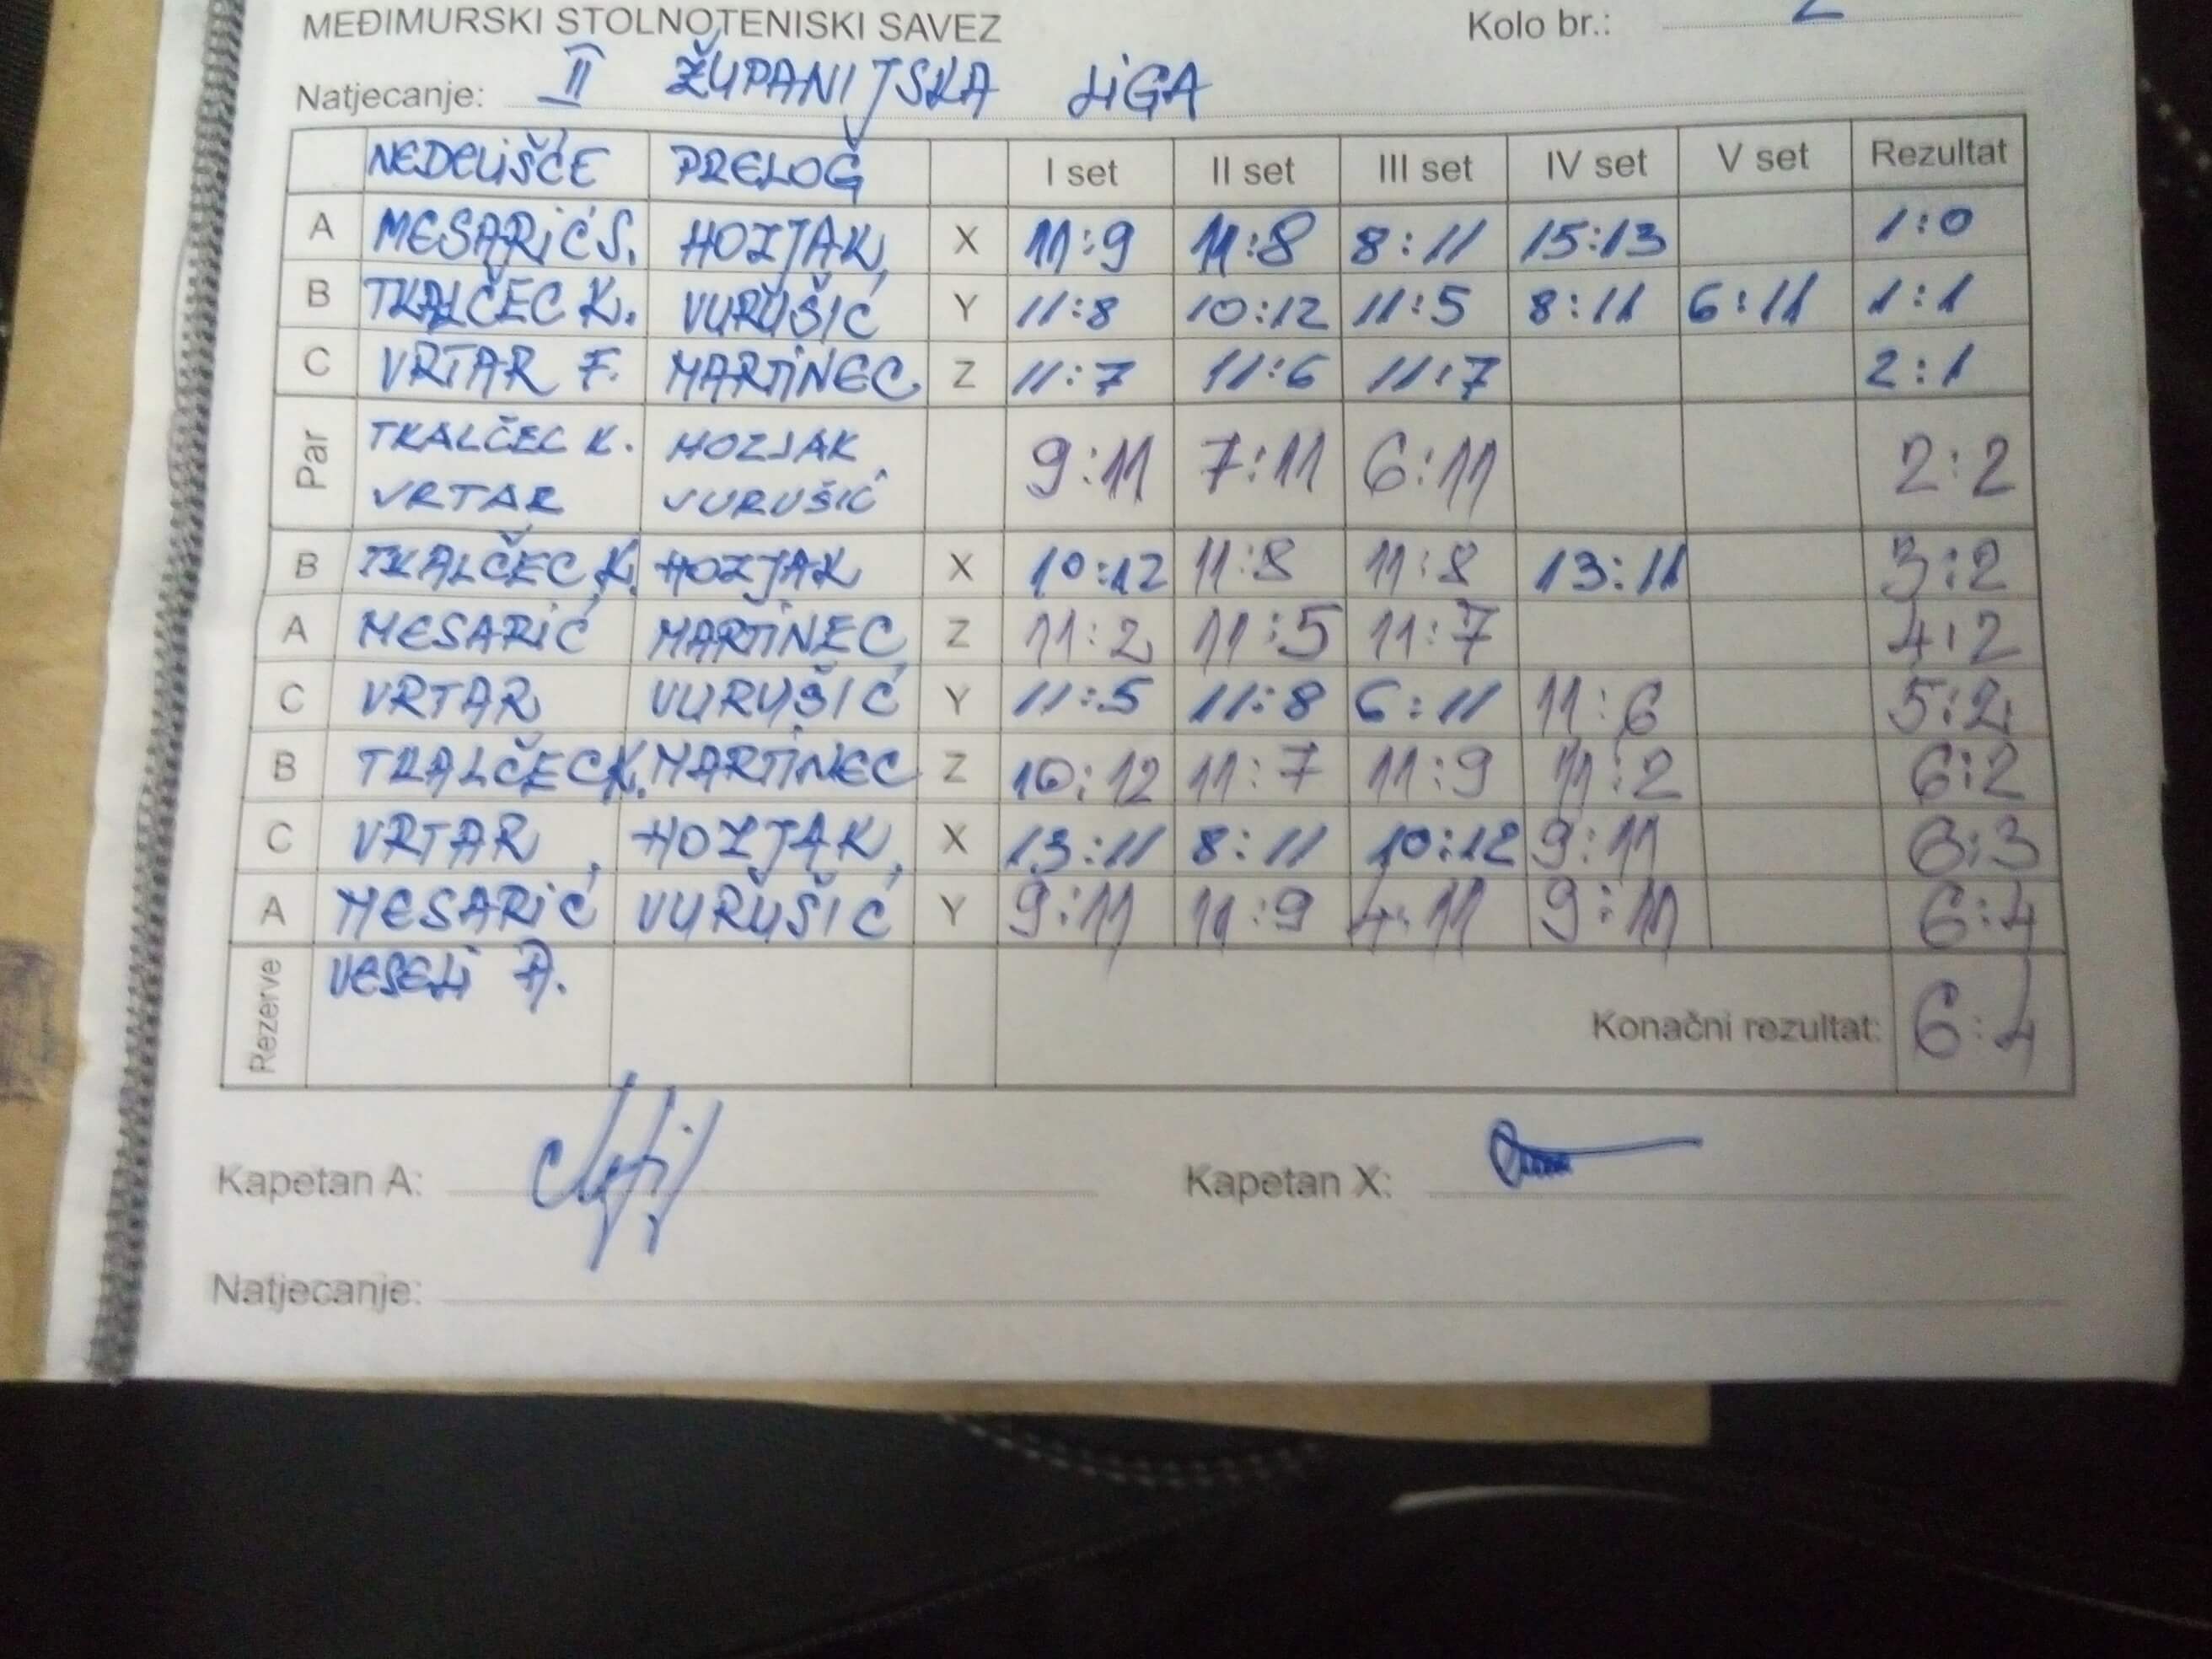 MEĐIMURSKI STOLNOTENISKI SAVEZ Kolo br.: 2
Natjecanje: II ŽUPANIJSKA LIGA
NEDELIŠĆE PRELOG I set II set III set IV set V set Rezultat
A MESARIĆ S. HOZJAK X 11:9 11:8 8:11 15:13 1:0
B TKALČEC K. VURUŠIĆ Y 11:8 10:12 11:5 8:11 6:11 1:1
C VRTAR F. MARTINEC Z 11:7 11:6 11:7 2:1
Par TKALČEC K. HOZJAK 9:11 7:11 6:11 2:2
VRTAR VURUŠIĆ
B TKALČEC K. HOZJAK X 10:12 11:8 11:8 13:11 3:2
A MESARIĆ MARTINEC Z 11:2 11:5 11:7 4:2
C VRTAR VURUŠIĆ Y 11:5 11:8 6:11 11:6 5:2
B TKALČEC K. MARTINEC Z 10:12 11:7 11:9 11:2 6:2
C VRTAR HOZJAK X 13:11 8:11 10:12 9:11 6:3
A MESARIĆ VURUŠIĆ Y 9:11 11:9 4:11 9:11 6:4
Rezerve VESELI
Konačni rezultat: 6:4
Kapetan A: Kapetan X:
Natjecanje: